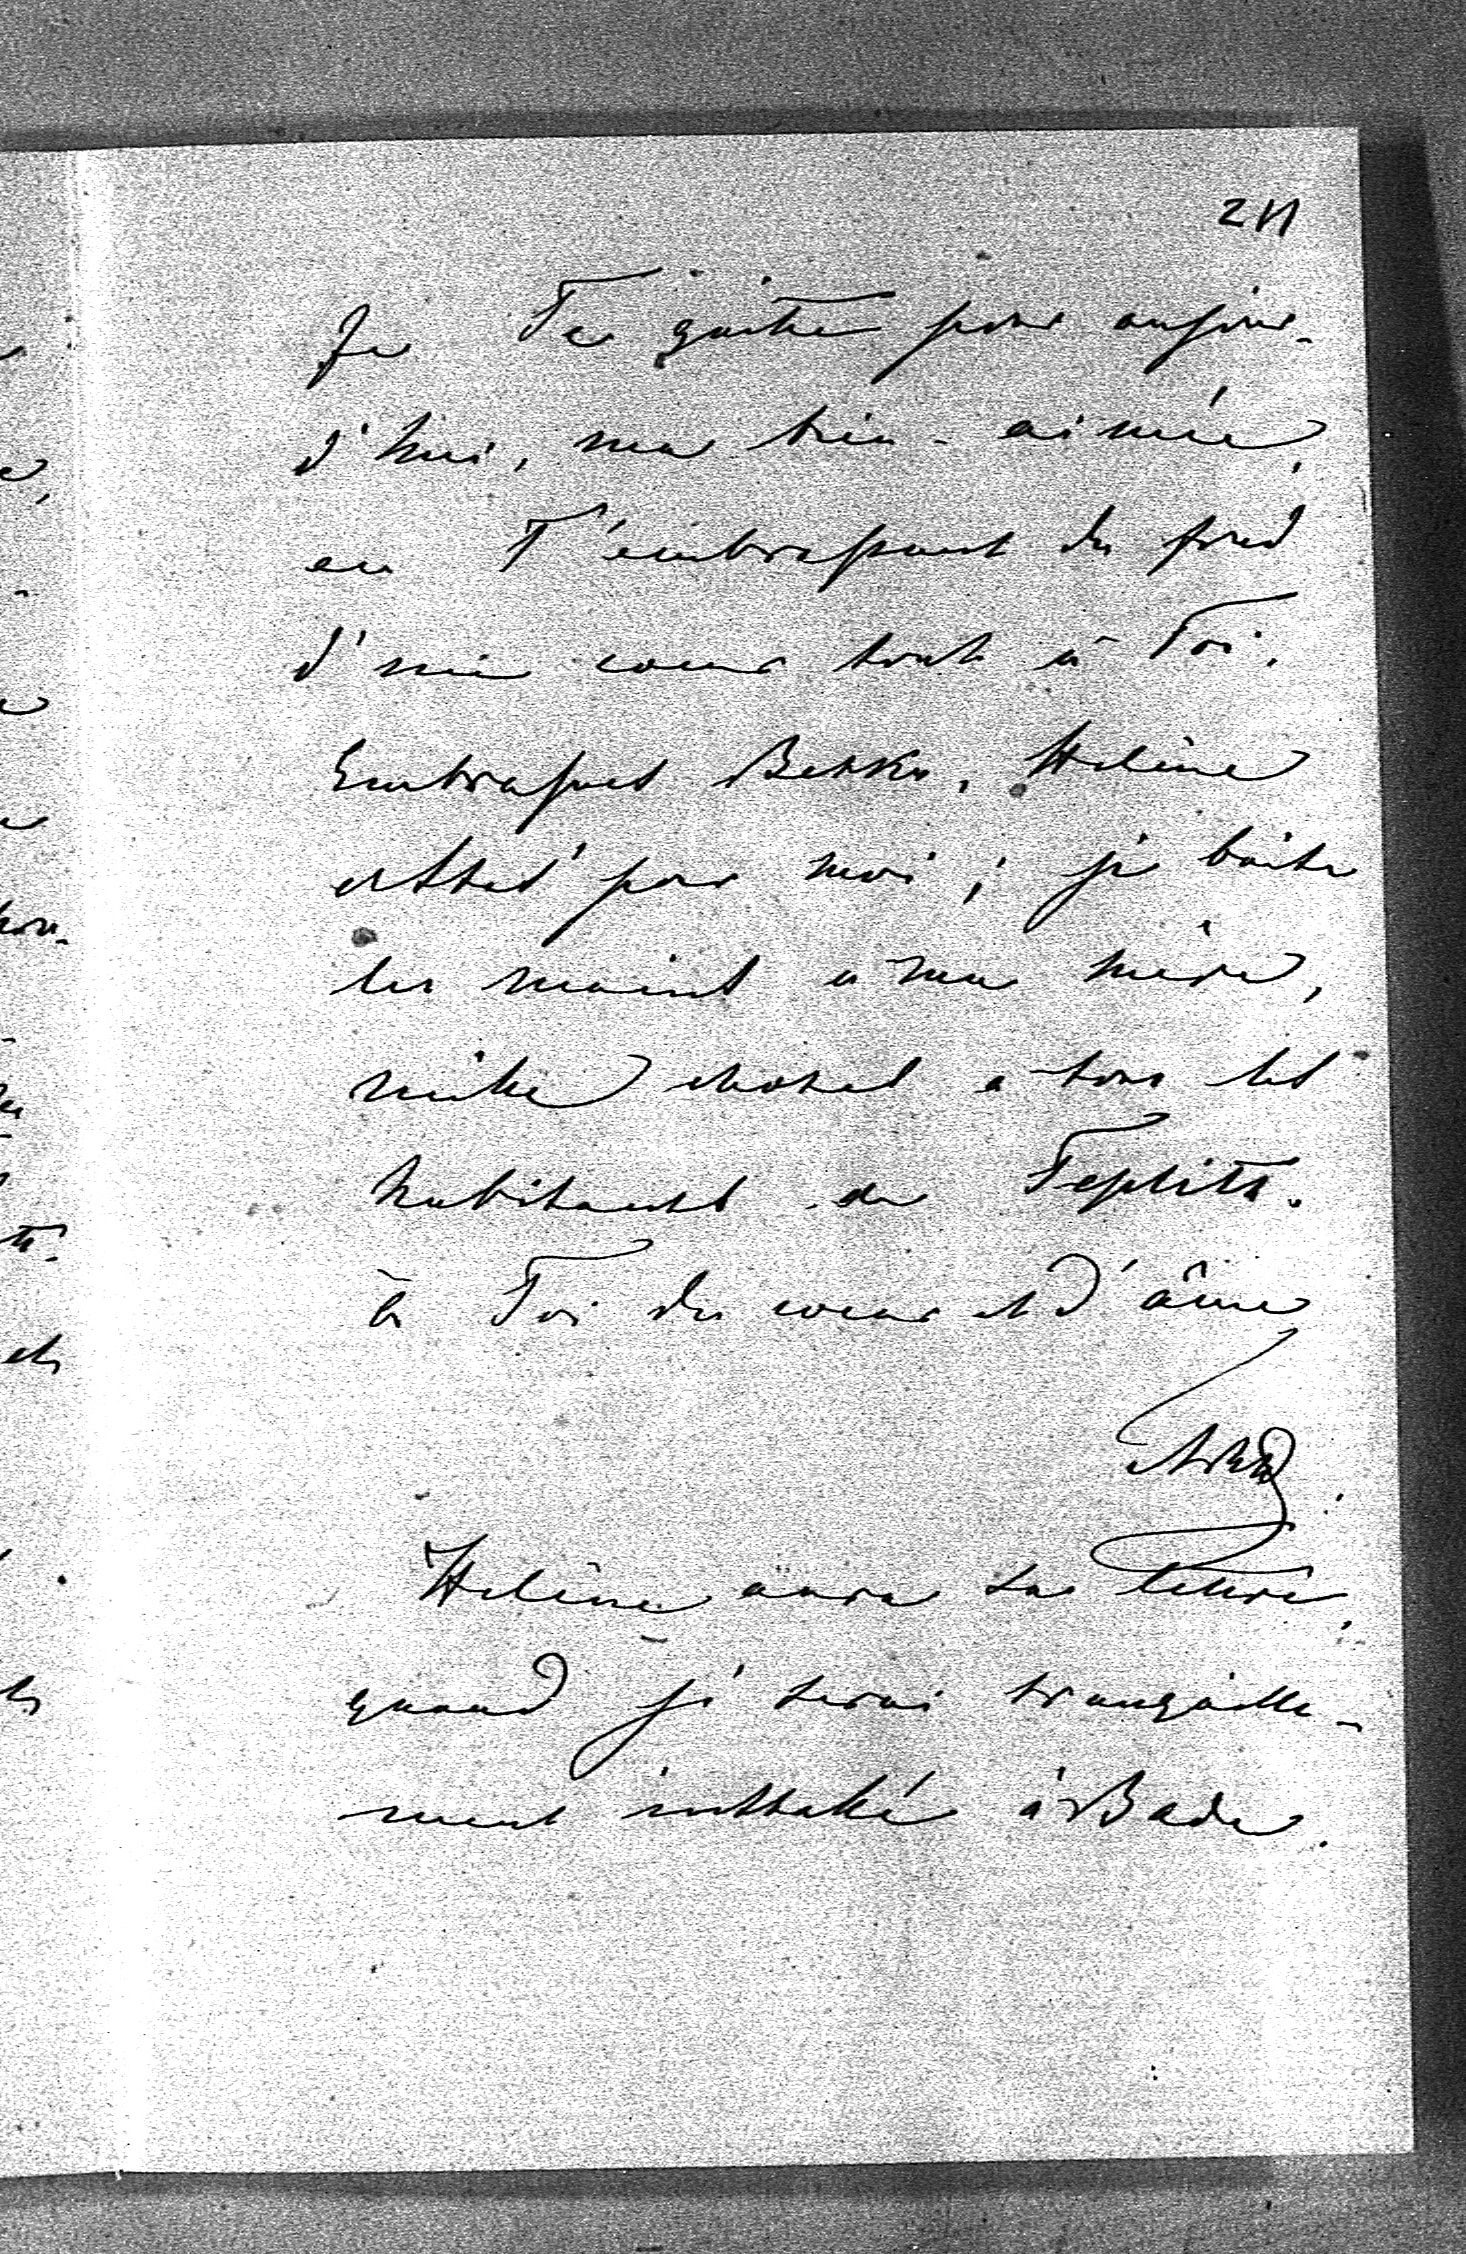 211
Je Te quitte pour aujour-
d'hui, ma bien-aimée,
en T'embrassant du fond
d'un coeur tout à Toi.
Embrasses Betka, Hélène
et pour moi; je baise
les mains à ma mère,
mille choses a tous les
habitants de Teplitz.
à Toi du coeur et d'âme
Hélène aura sa lettre,
quand je serai tranquille-
ment installé à Bade.